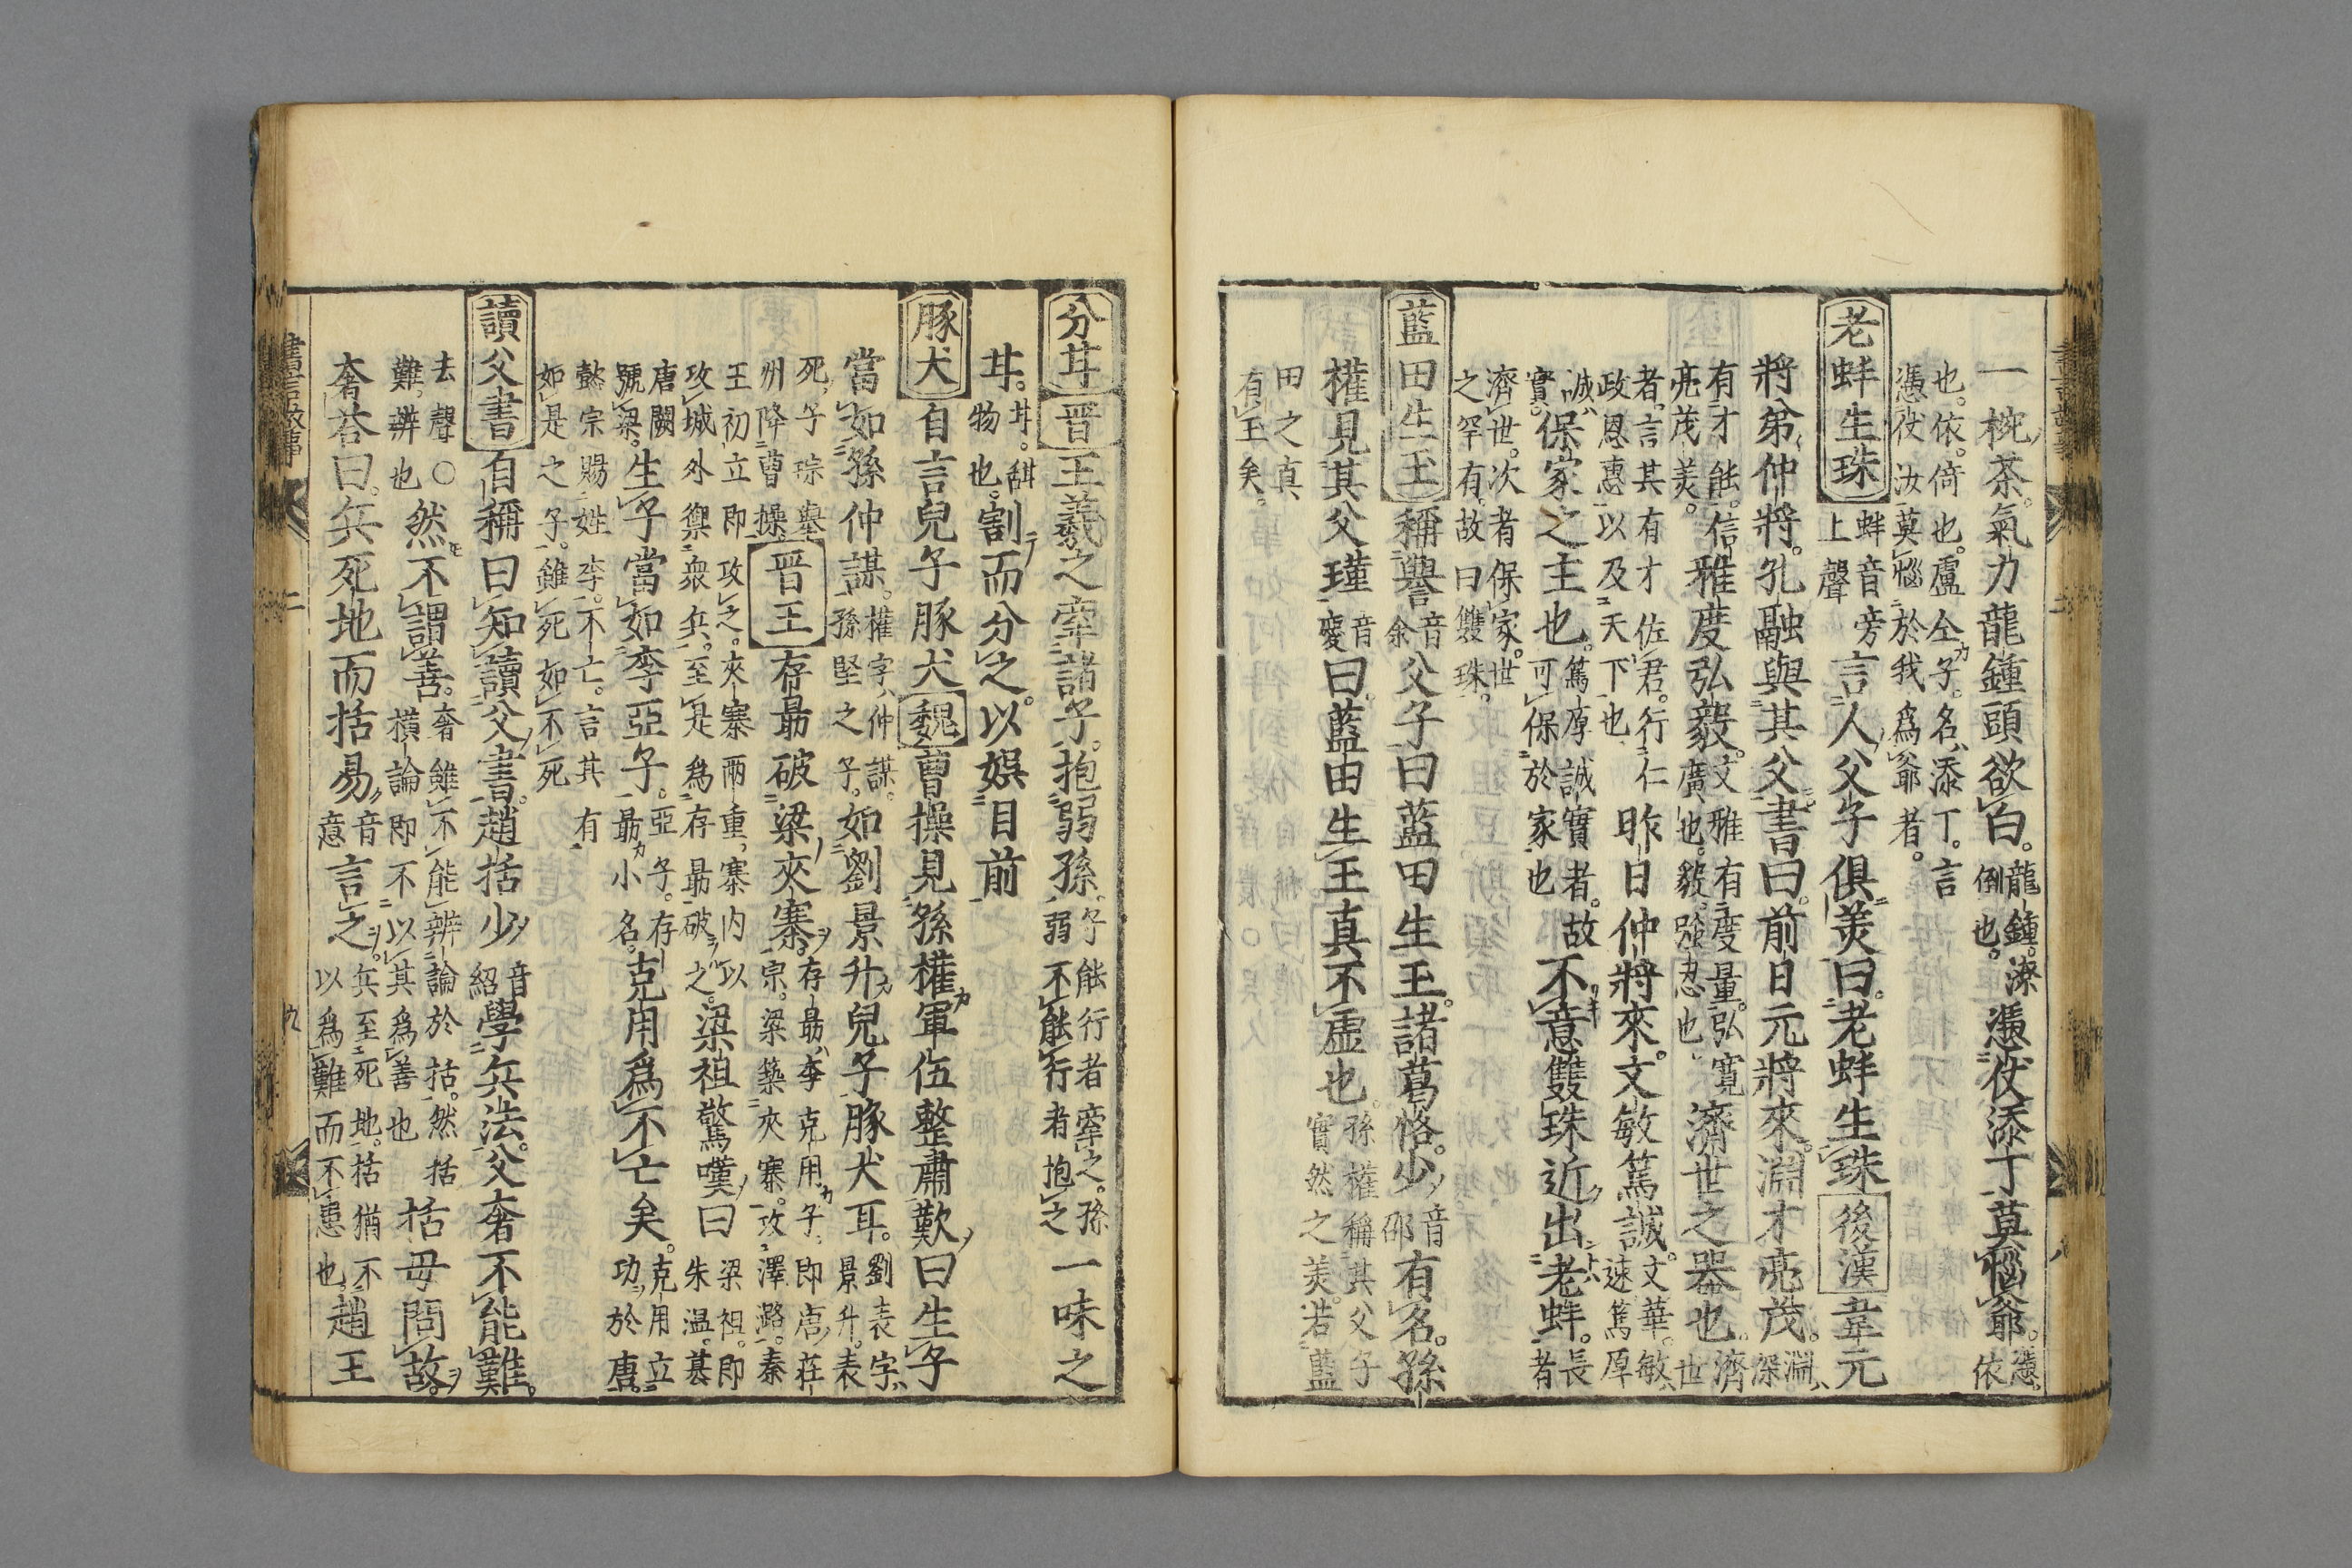 一椀茶氣力龍鍾頭欲白龍鍾潦倒也憑仗添丁莫惱爺憑依
也依倚也盧仝子名添丁言憑仗汝莫惱於我爲爺者
老蚌生珠蚌音旁上聲言人父子俱美曰老蚌生珠後漢韋元
將弟仲將孔融與其父書曰前日元將來淵才亮茂淵深
有才能信亮茂美雅度弘毅文雅有度量弘寬廣也毅强忍也濟世之器也濟世
者言其有才佐君行仁政恩惠以及天下也昨日仲將來文敏篤誠文華敏速篤厚
誠實保家之主也篤厚誠實者故可保於家也不意雙珠近出老蚌長者
濟世次者保家世之罕有故曰雙珠
藍田生玉稱譽音余父子曰藍田生玉諸葛恪少音邵有名孫
權見其父瑾音覲曰藍田生玉真不虛也孫權稱其父子實然之美若藍
田之真有玉矣
分甘晋王羲之牽諸子抱弱孫子能行者牽之孫弱不能行者抱之一味之
甘甘甜物也割而分之以娯目前
豚犬自言兒子豚犬魏曹操見孫權軍伍整肅歎曰生子
當如孫仲謀權字仲謀孫堅之子如劉景升兒子豚犬耳劉表字景升表
死子琮舉州降曹操晋王存勗破梁夾寨存勗李克用子即唐莊宗梁築夾寨攻澤潞秦
王初立即攻之夾寨兩重寨内以攻城外禦衆兵至是爲存勗破之梁祖驚嘆曰梁祖即朱温甚
唐闕號梁生子當如李亞子亞子存勗小名克用爲不亡矣克用立功於唐
懿宗賜姓李不亡言其有如是之子雖死如不死
讀父書自稱曰知讀父書趙括少音紹學兵法父奢不能難
去聲難辨也○然不謂善奢雖不能辨論於括然括橫論即不以其爲善也括母問故
奢荅曰兵死地而括易音意言之兵至死地括猶不以爲難而不患也趙王
書言故事
二
九